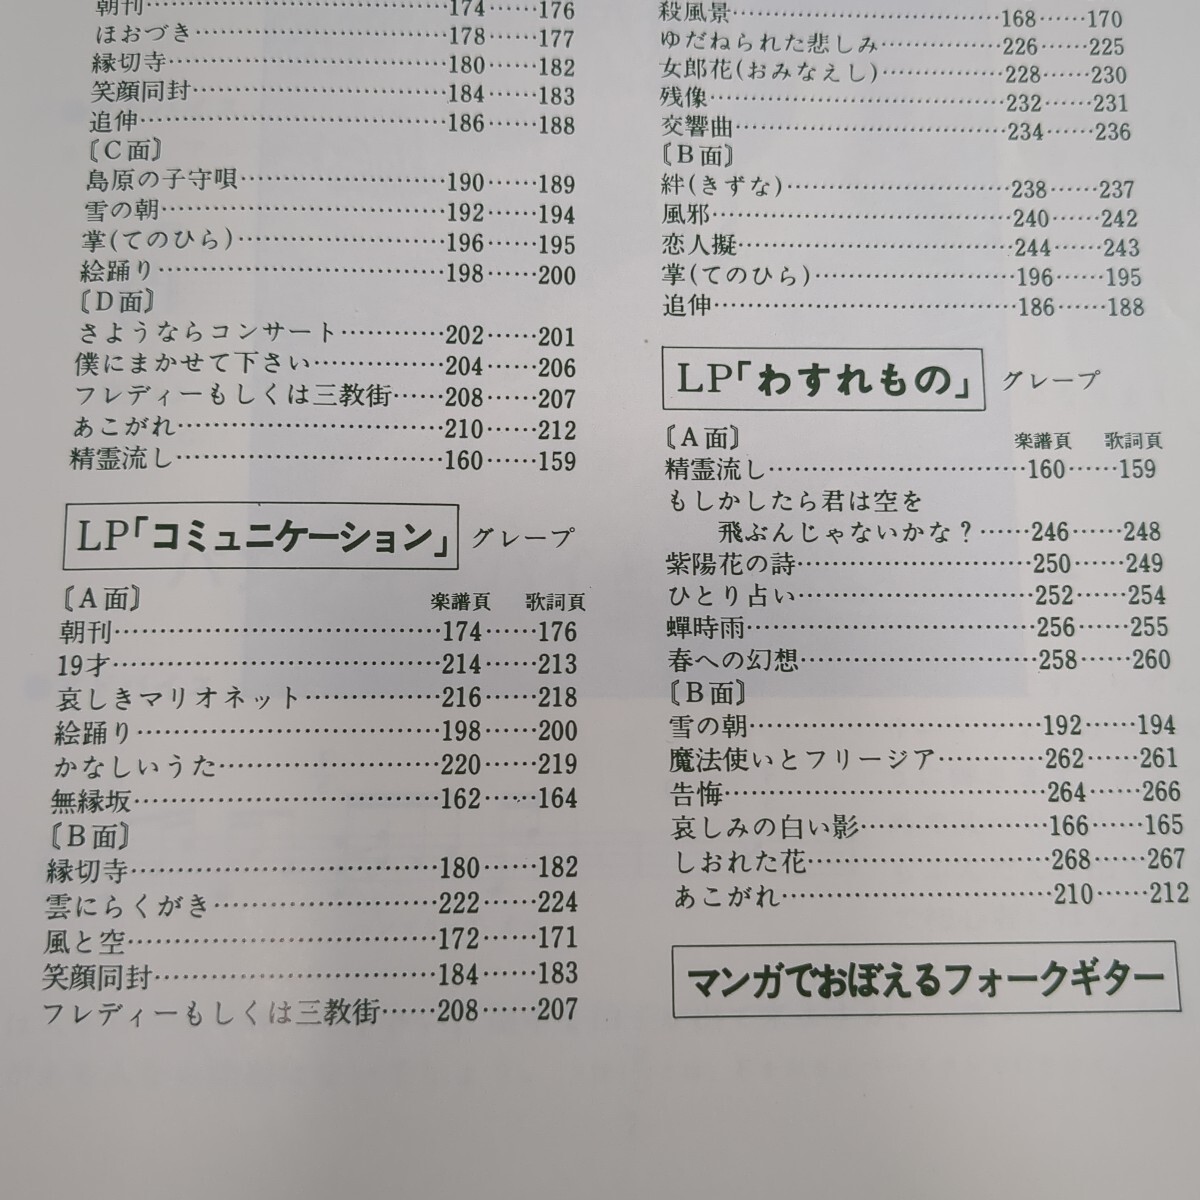 朝刊…………………………174……176
ほおづき……………………178……177
縁切寺………………………180……182
笑顔同封……………………184……183
追伸…………………………186……188
〔C面〕
島原の子守唄………………190……189
雪の朝………………………192……194
掌(てのひら)………………196……195
絵踊り………………………198……200
〔D面〕
さようならコンサート…………202……201
僕にまかせて下さい…………204……206
フレディーもしくは三教街……208……207
あこがれ……………………210……212
精霊流し……………………160……159
LP「コミュニケーション」 グレープ
〔A面〕 楽譜頁 歌詞頁
朝刊…………………………174……176
19才…………………………214……213
哀しきマリオネット…………216……218
絵踊り………………………198……200
かなしいうた………………220……219
無縁坂………………………162……164
〔B面〕
縁切寺………………………180……182
雲にらくがき………………222……224
風と空………………………172……171
笑顔同封……………………184……183
フレディーもしくは三教街……208……207
殺風景………………………168……170
ゆだねられた悲しみ…………226……225
女郎花(おみなえし)…………228……230
残像…………………………232……231
交響曲………………………234……236
〔B面〕
絆(きずな)…………………238……237
風邪…………………………240……242
恋人擬………………………244……243
掌(てのひら)………………196……195
追伸…………………………186……188
LP「わすれもの」 グレープ
〔A面〕 楽譜頁 歌詞頁
精霊流し……………………160……159
もしかしたら君は空を
飛ぶんじゃないかな?……246……248
紫陽花の詩…………………250……249
ひとり占い…………………252……254
蟬時雨………………………256……255
春への幻想…………………258……260
〔B面〕
雪の朝………………………192……194
魔法使いとフリージア…………262……261
告悔…………………………264……266
哀しみの白い影……………166……165
しおれた花…………………268……267
あこがれ……………………210……212
マンガでおぼえるフォークギター